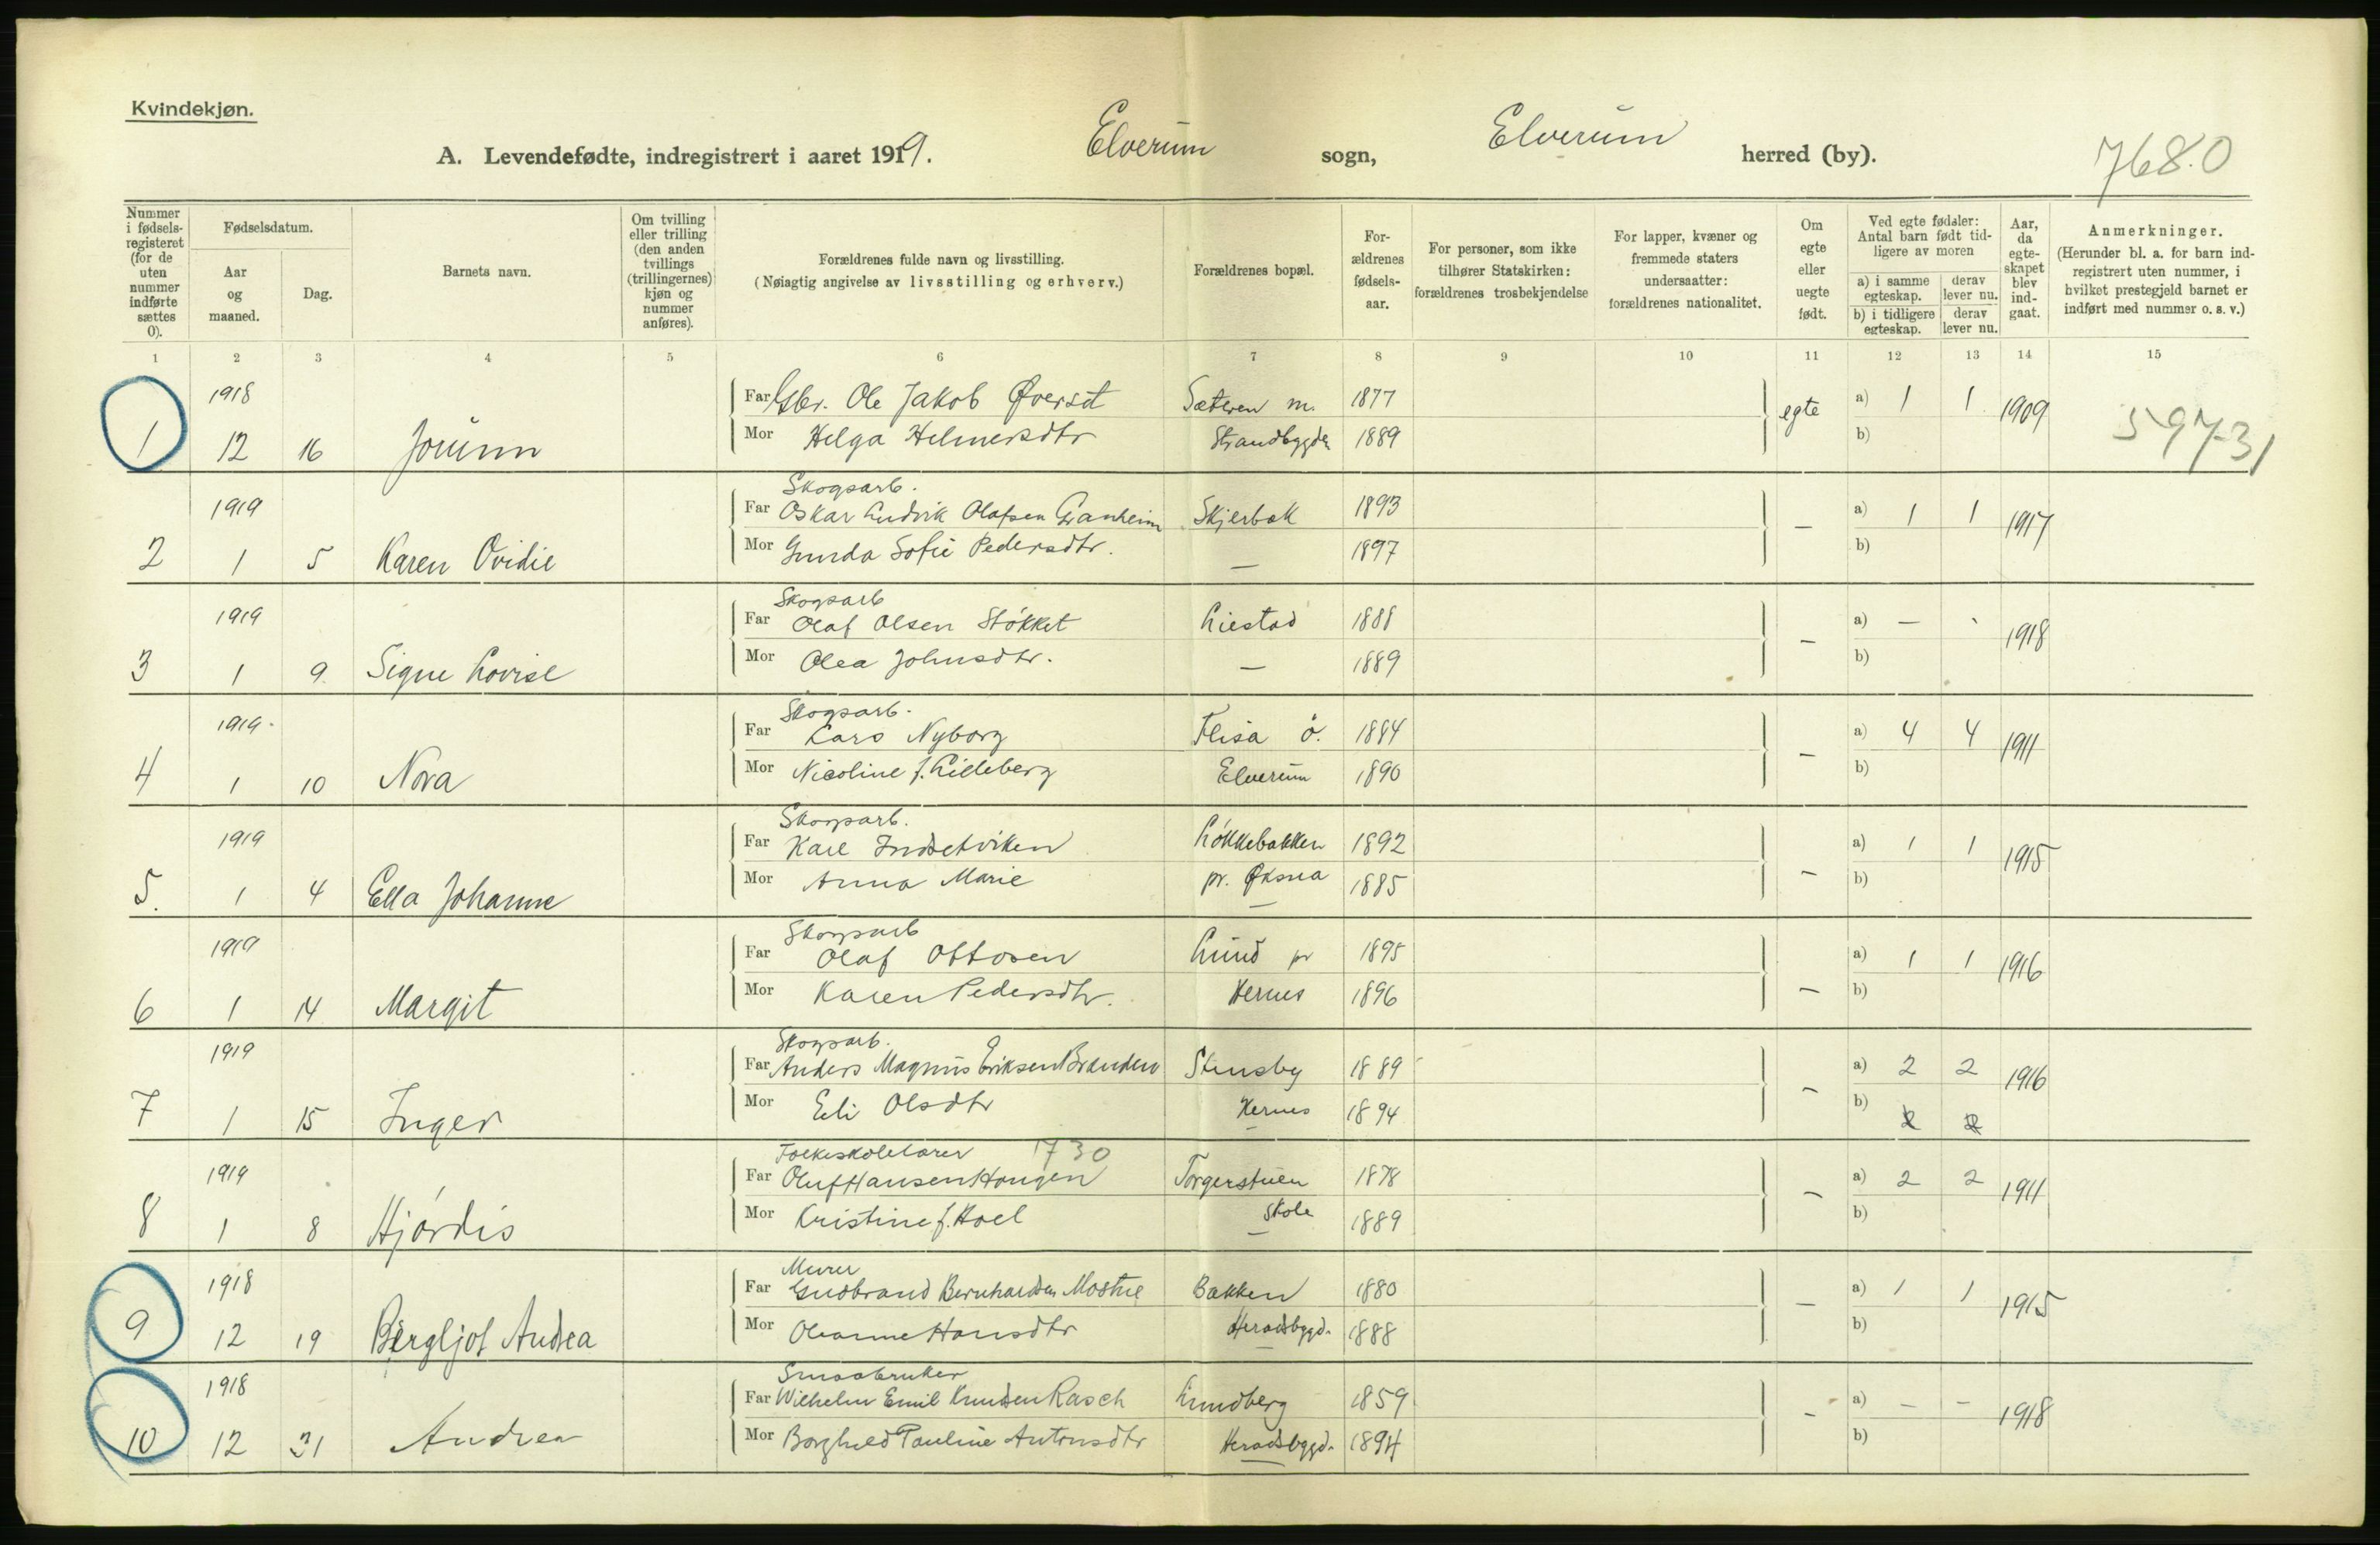 Kvindekjøn.
A. Levendefødte, indregistrert i aaret 1919. Elverum sogn, Elverum herred (by). 768.0
Nummer i fødsels-registeret (for de uten nummer indførte sættes 0).
Fødselsdatum.
Aar og maaned.
Dag.
Barnets navn.
Om tvilling eller trilling (den anden tvillings (trillingernes) kjøn og nummer anføres).
Forældrenes fulde navn og livsstilling.
(Nøiagtig angivelse av livsstilling og erhverv.)
Forældrenes bopæl.
For-ældrenes fødsels-aar.
For personer, som ikke tilhører Statskirken: forældrenes trosbekjendelse
For lapper, kvæner og fremmede staters undersaatter: forældrenes nationalitet.
Om egte eller uegte født.
Ved egte fødsler: Antal barn født tid-ligere av moren
a) i samme egteskap. derav lever nu.
b) i tidligere egteskap. derav lever nu.
Aar, da egte-skapet blev ind-gaat.
Anmerkninger.
(Herunder bl. a. for barn ind-registrert uten nummer, i hvilket prestegjeld barnet er indført med nummer o. s. v.)
1 2 3 4 5 6 7 8 9 10 11 12 13 14 15
1918 Far Gbr. Ole Jakob Øverset Sæteren m. 1877 egte a) 1 1 1909
1 12 16 Jorunn Mor Helga Helmersdtr Strandbygden 1889 b) 59731
Skogsarb.
1919 Far Oskar Ludvik Olafsen Granheim Skjerbæk 1893 — a) 1 1 1917
2 1 5 Karen Ovidie Mor Gunda Sofie Pedersdtr. — 1897 b)
Skogsarb
1919 Far Olaf Olsen Støkket Liestad 1888 — a) — - 1918
3 1 9 Signe Lovise Mor Olea Johnsdtr. — 1889 b)
Skogsarb.
1919. Far Lars Nyborg Flisa ö. 1884 — a) 4 4 1911
4 1 10 Nora Mor Nicoline f. Lilleberg Elverum 1890 b)
Skogsarb.
1919 Far Karl Indsetviken Løkkebakken 1892 — a) 1 1 1915
5. 1 4 Ella Johanne Mor Anna Marie pr. Øksna 1885 b)
Skogsarb
1919 Far Olaf Ottosen Lund pr 1895 — a) 1 1 1916
6 1 14 Margit Mor Karen Pedersdtr. Hernes 1896 b)
Skogsarb.
1919 Far Anders Magnus Eriksen Branden Stensby 1889 — a) 2 2 1916
7 1 15 Inger Mor Eli Olsdtr Hernes 1894 b)
Folkeskolelærer 1730
1919 Far Oluf Hansen Haugen Torgerstuen 1878 — a) 2 2 1911
8 1 8 Hjördis Mor Kristine f. Hoel Skole 1889 b)
Murer
1918 Far Gudbrand Bernhardsen Mostue Bakken 1880 — a) 1 1 1915
9 12 19 Bergljot Andrea Mor Oleanne Hansdtr Heradsbygd. 1888 b)
Smaabruker
1918 Far Wilhelm Emil Knudsen Rasch Lundberg 1859 - a) — - 1918
10 12 31 Andrea Mor Borghild Pauline Antonsdtr Heradsbygd. 1894 b)